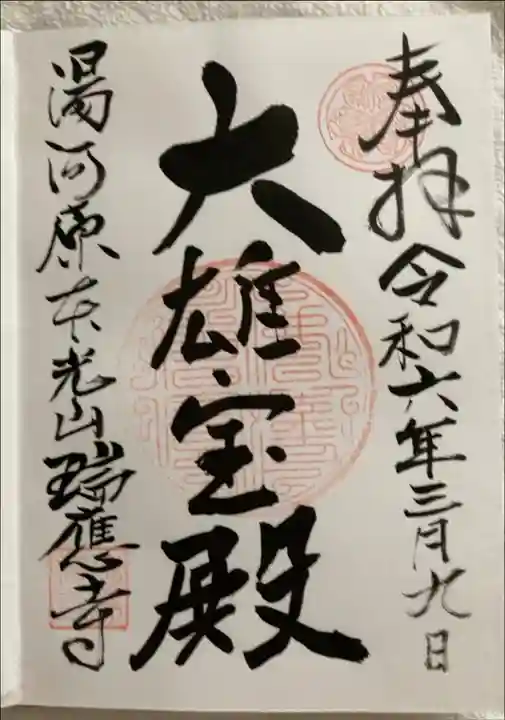 奉拝 令和六年三月九日
大雄宝殿
湯河原本光山瑞應寺